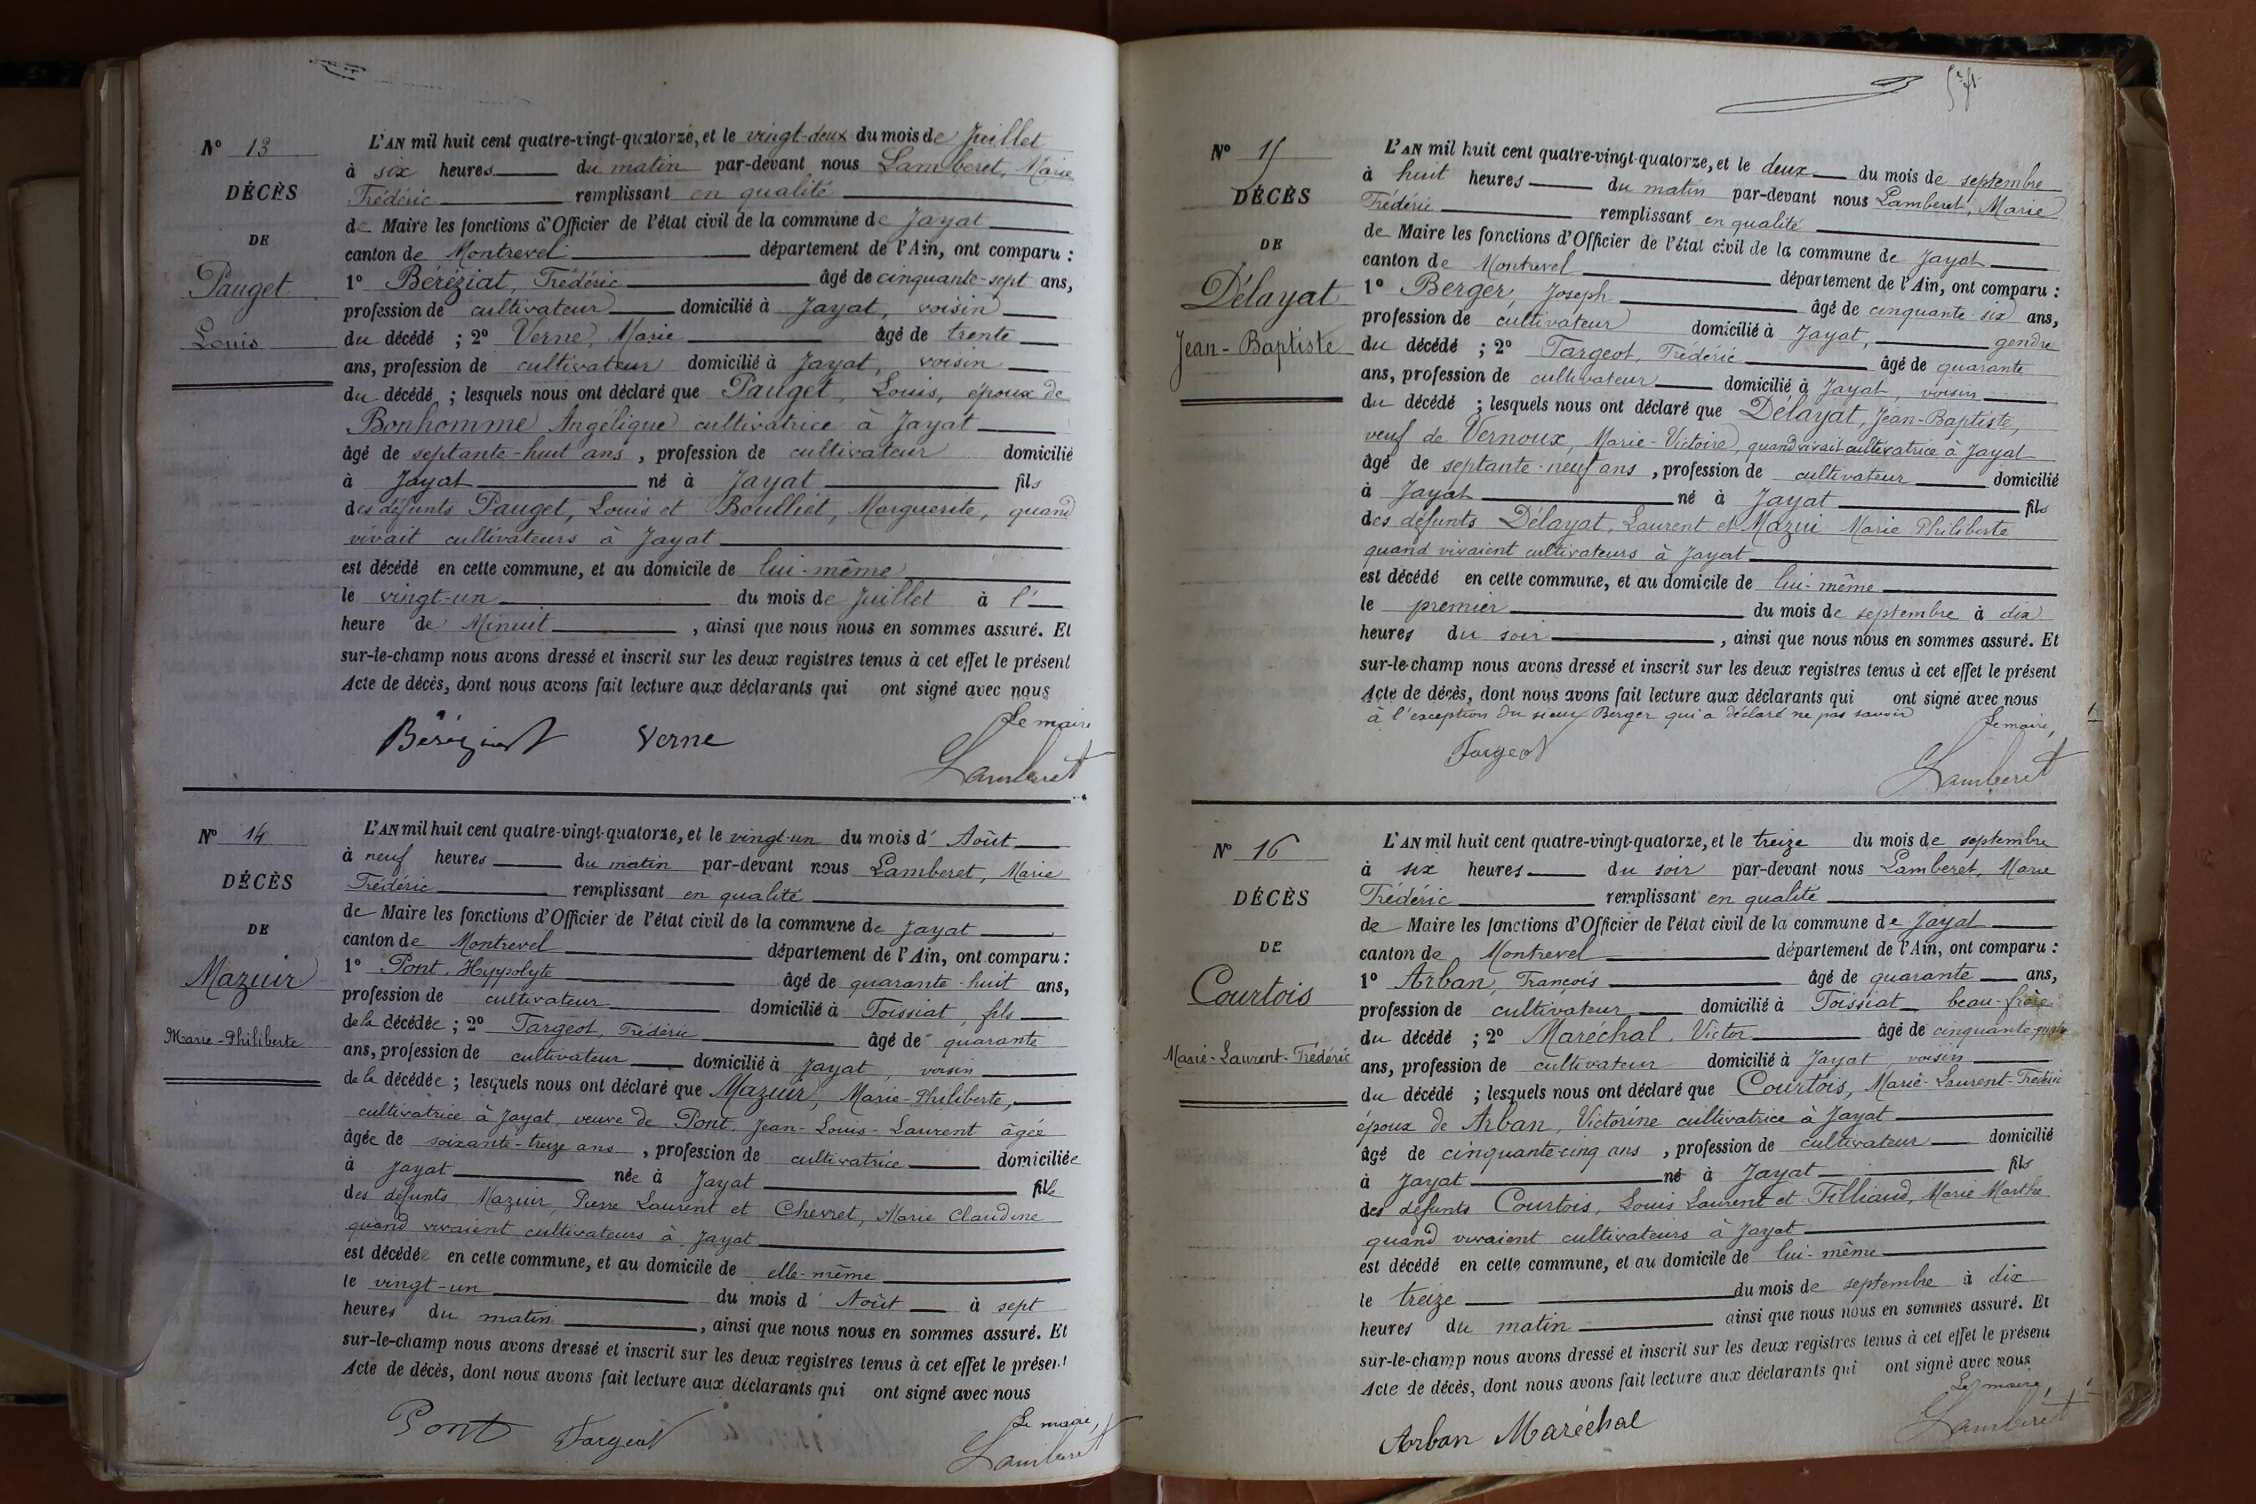 N° 13
DÉCÈS
DE
Pauget
Louis
L'AN mil huit cent quatre-vingt-quatorze, et le vingt-deux du mois de Juillet
à six heures du matin par-devant nous Lamberet, Marie
Frédéric remplissant en qualité
de Maire les fonctions d'Officier de l'état civil de la commune de Jayat
canton de Montrevel département de l'Ain, ont comparu :
1° Béréziat, Frédéric âgé de cinquante-sept ans,
profession de cultivateur domicilié à Jayat, voisin
du décédé ; 2° Verne, Marie âgé de trente
ans, profession de cultivateur domicilié à Jayat, voisin
du décédé ; lesquels nous ont déclaré que Pauget, Louis, époux de
Bonhomme Angélique cultivatrice à Jayat
âgé de septante-huit ans, profession de cultivateur domicilié
à Jayat né à Jayat fils
des défunts Pauget, Louis et Boulliet, Marguerite, quand
vivait cultivateurs à Jayat
est décédé en cette commune, et au domicile de lui-même
le vingt-un du mois de Juillet à l'
heure de Minuit, ainsi que nous nous en sommes assuré. Et
sur-le-champ nous avons dressé et inscrit sur les deux registres tenus à cet effet le présent
Acte de décès, dont nous avons fait lecture aux déclarants qui ont signé avec nous
Le maire
Béréziat Verne Lamberet
N° 14
DÉCÈS
DE
Mazuir
Marie-Philiberte
L'AN mil huit cent quatre-vingt-quatorze, et le vingt-un du mois d'Août
à neuf heures du matin par-devant nous Lamberet, Marie
Frédéric remplissant en qualité
de Maire les fonctions d'Officier de l'état civil de la commune de Jayat
canton de Montrevel département de l'Ain, ont comparu :
1° Pont, Hyppolyte âgé de quarante-huit ans,
profession de cultivateur domicilié à Foissiat, fils
de la décédée ; 2° Fargeot, Frédéric âgé de quarante
ans, profession de cultivateur domicilié à Jayat, voisin
de la décédée ; lesquels nous ont déclaré que Mazuir, Marie-Philiberte,
cultivatrice à Jayat, veuve de Pont, Jean-Louis-Laurent âgée
âgée de soixante-treize ans, profession de cultivatrice domiciliée
à Jayat née à Jayat fille
des défunts Mazuir, Pierre Laurent et Chevret, Marie Claudine
quand vivaient cultivateurs à Jayat
est décédée en cette commune, et au domicile de elle-même
le vingt-un du mois d'Août à sept
heures du matin, ainsi que nous nous en sommes assuré. Et
sur-le-champ nous avons dressé et inscrit sur les deux registres tenus à cet effet le présent
Acte de décès, dont nous avons fait lecture aux déclarants qui ont signé avec nous
Le maire,
Pont Fargeot Lamberet
N° 15
DÉCÈS
DE
Délayat
Jean-Baptiste
L'AN mil huit cent quatre-vingt-quatorze, et le deux du mois de septembre
à huit heures du matin par-devant nous Lamberet, Marie
Frédéric remplissant en qualité
de Maire les fonctions d'Officier de l'état civil de la commune de Jayat
canton de Montrevel département de l'Ain, ont comparu :
1° Berger, Joseph âgé de cinquante six ans,
profession de cultivateur domicilié à Jayat, gendre
du décédé ; 2° Fargeot, Frédéric âgé de quarante
ans, profession de cultivateur domicilié à Jayat, voisin
du décédé ; lesquels nous ont déclaré que Délayat, Jean-Baptiste,
veuf de Vernoux, Marie-Victoire, quand vivait cultivatrice à Jayat
âgé de septante-neuf ans, profession de cultivateur domicilié
à Jayat né à Jayat fils
des défunts Délayat, Laurent et Mazui Marie Philiberte
quand vivaient cultivateurs à Jayat
est décédé en cette commune, et au domicile de lui-même
le premier du mois de septembre à dix
heures du soir, ainsi que nous nous en sommes assuré. Et
sur-le-champ nous avons dressé et inscrit sur les deux registres tenus à cet effet le présent
Acte de décès, dont nous avons fait lecture aux déclarants qui ont signé avec nous
à l'exception du sieur Berger qui a déclaré ne pas savoir
Le maire,
Fargeot Lamberet
N° 16
DÉCÈS
DE
Courtois
Marie-Laurent-Frédéric
L'AN mil huit cent quatre-vingt-quatorze, et le treize du mois de septembre
à six heures du soir par-devant nous Lamberet, Marie
Frédéric remplissant en qualité
de Maire les fonctions d'Officier de l'état civil de la commune de Jayat
canton de Montrevel département de l'Ain, ont comparu :
1° Arban, François âgé de quarante ans,
profession de cultivateur domicilié à Foissiat beau-frère
du décédé ; 2° Maréchal, Victor âgé de cinquante-quatre
ans, profession de cultivateur domicilié à Jayat voisin
du décédé ; lesquels nous ont déclaré que Courtois, Marie-Laurent-Frédéric
époux de Arban, Victorine cultivatrice à Jayat
âgé de cinquante-cinq ans, profession de cultivateur domicilié
à Jayat né à Jayat fils
des défunts Courtois, Louis Laurent et Filliaud, Marie Marthe
quand vivaient cultivateurs à Jayat
est décédé en cette commune, et au domicile de lui-même
le treize du mois de septembre à dix
heures du matin ainsi que nous nous en sommes assuré. Et
sur-le-champ nous avons dressé et inscrit sur les deux registres tenus à cet effet le présent
Acte de décès, dont nous avons fait lecture aux déclarants qui ont signé avec nous
Le maire,
Arban Maréchal Lamberet